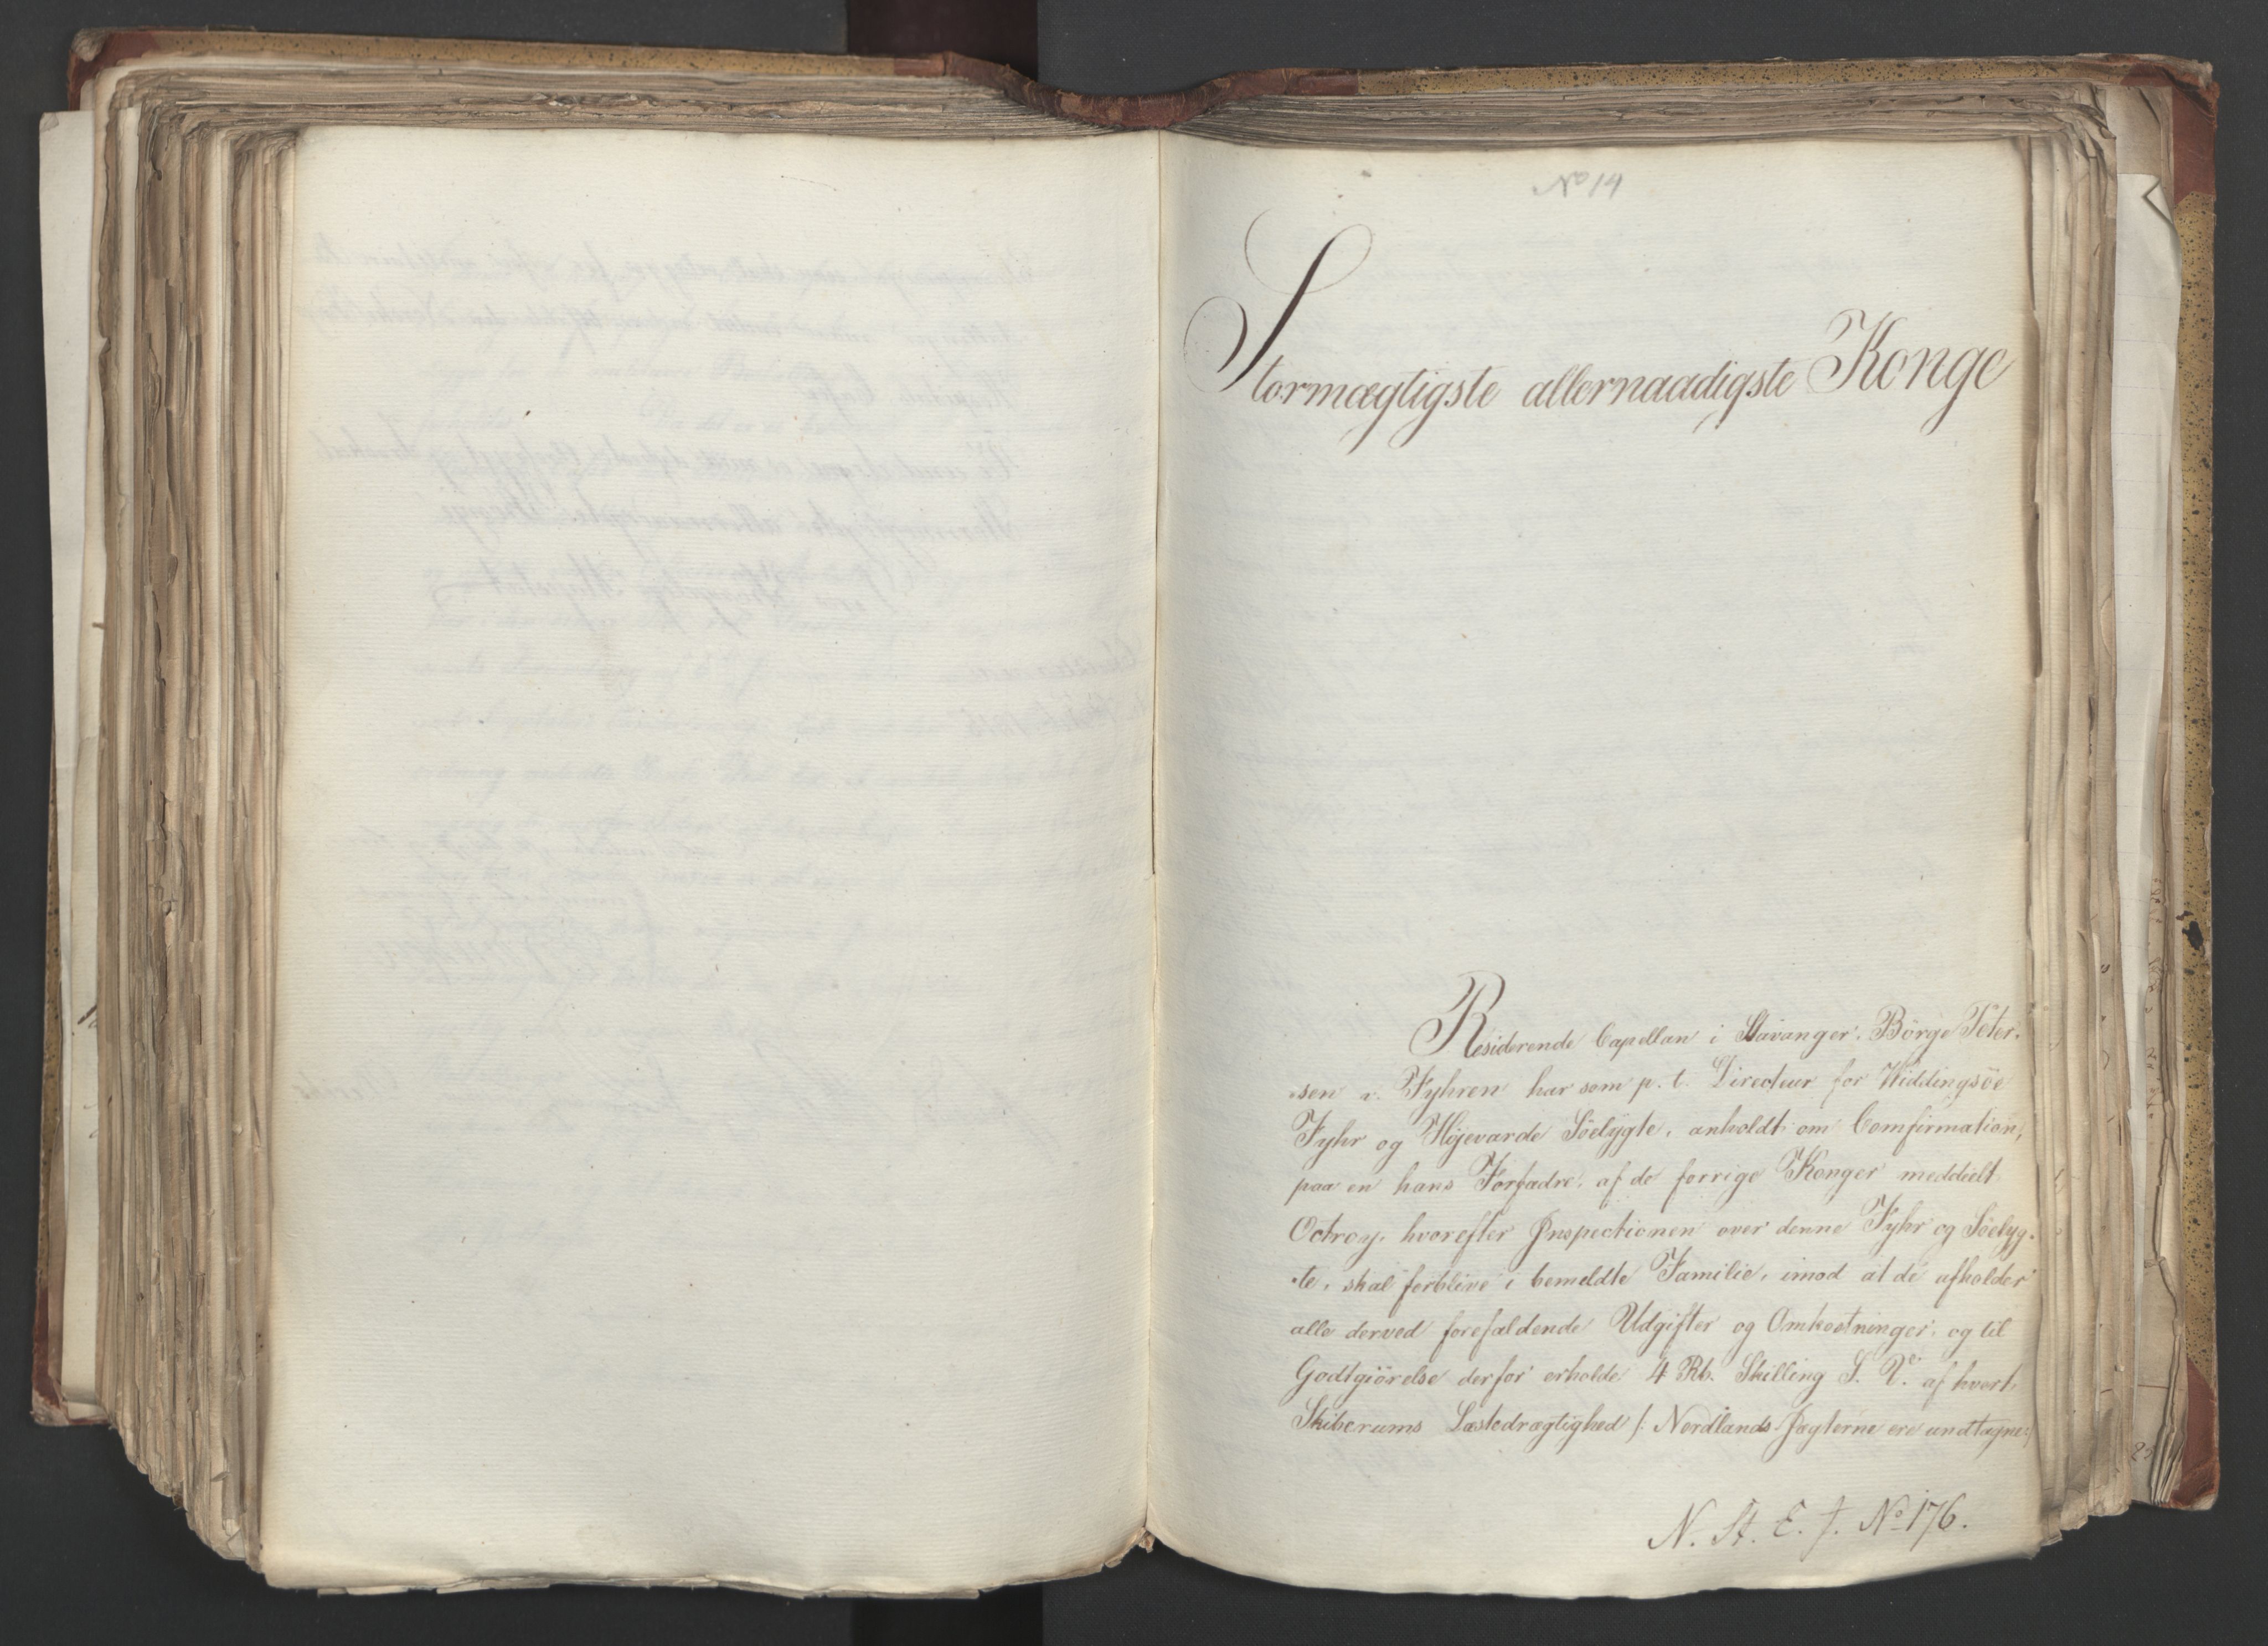 No 14
Stormægtigste allernaadigste Konge
Residerende Capellan i Stavanger, Børge Peter-
-sen v. Fyhren har som p. t. Directeur for Hviddingsöe
Fyhr og Höjevarde Söelygte, anholdt om Comfirmation,
paa en hans Forfædre, af de forrige Konger meddeelt
Octroy, hvorefter Inspectionen over denne Fyhr og Söelyg-
-te, skal forblive i bemeldte Familie, imod at de afholder
alle derved forefaldende Udgifter og Omkostninger, og til
Godtgiörelse derfor erholde 4 Rb. Skilling S. V. af hvert
Skiberums Læstedrægtighed /: Nordlands Jægterne ere undtagne:/
N. St. E. J. No 176.